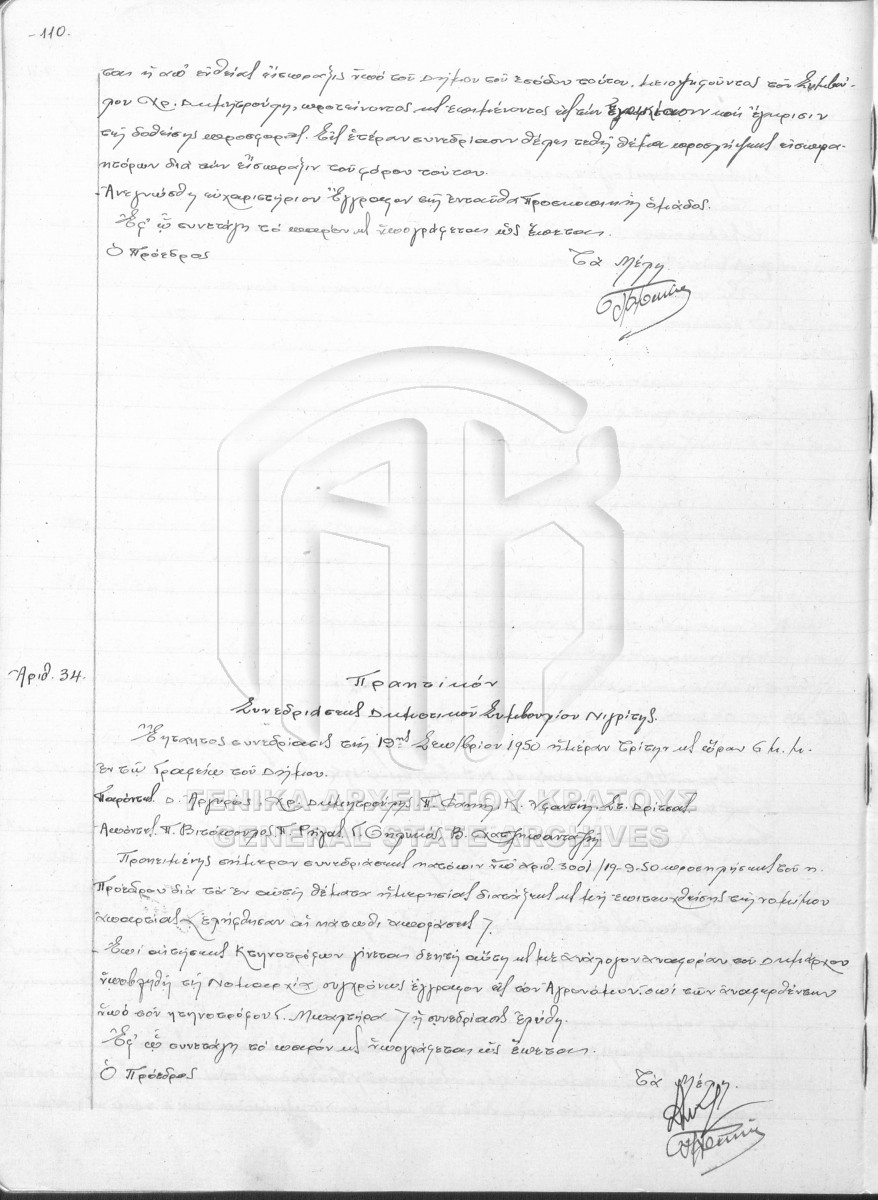 -110-
ται ἡ ἀπ' εὐθείας εἴσπραξις ὑπό τοῦ Δήμου τοῦ ἐσόδου τούτου. Μειοψηφοῦντος τοῦ Συμβού-
λου Χρ. Δημητρούλη, προτείνοντος καί ἐπιμένοντος εἰς τήν ἔγκρισιν
τῆς δοθείσης προσφορᾶς. Εἰς ἑτέραν συνεδρίασιν θέλει τεθῆ θέμα προσλήψεως εἰσπρα-
κτόρων διά τήν εἴσπραξιν τοῦ φόρου τούτου.
-Ἀνεγνώσθη εὐχαριστήριον ἔγγραφον τῆς ἐνταῦθα Προσκοπικῆς ὁμάδος.
Ἐφ' ᾧ συνετάγη τό παρόν καί ὑπογράφεται ὡς ἕπεται.
Ὁ Πρόεδρος Τὰ Μέλη.
Ἀριθ. 34.
Πρακτικόν
Συνεδριάσεως Δημοτικοῦ Συμβουλίου Νιγρίτης.
Ἔκτακτος συνεδρίασις τῆς 19ης Σεπ/βρίου 1950 ἡμέραν Τρίτην καί ὥραν 6 μ.μ.
ἐν τῷ Γραφείῳ τοῦ Δήμου.
Παρόντες Δ. Ἀργυρός, Χρ. Δημητρούλης, Π. Φάκης, Κ. Ὑφαντής, Στ. Δρίτσας
Ἀπόντες Π. Βιτόπουλος, Π. Ρήγας, Γ. Β. Χατζηπανταζῆς
Προκειμένης σήμερον συνεδριάσεως κατόπιν ὑπ' ἀριθ. 3001/19-9-50 προσκλήσεως τοῦ κ.
Προέδρου διά τά ἐν αὐτῇ θέματα ἡμερησίας διατάξεως καί μή ἐπιτευχθείσης τῆς νομίμου
ἀπαρτίας ἐλήφθησαν αἱ κάτωθι ἀποφάσεις
- Ἐπί αἰτήσεως Κτηνοτρόφων γίνεται δεκτή αὕτη καί μέ ἀνάλογον ἀναφοράν τοῦ Δημάρχου
ὑποβληθῇ τῇ Νομαρχίᾳ συγχρόνως ἔγγραφον εἰς τόν Ἀγρονόμον ἐπί τῶν ἀναφερθέντων
ὑπό τοῦ κτηνοτρόφου Γ. ἡ συνεδρίασις ἐλύθη.
Ἐφ' ᾧ συνετάγη τό παρόν καί ὑπογράφεται ὡς ἕπεται.
Ὁ Πρόεδρος Τὰ Μέλη.
ΓΕΝΙΚΑ ΑΡΧΕΙΑ ΤΟΥ ΚΡΑΤΟΥΣ
GENERAL STATE ARCHIVES